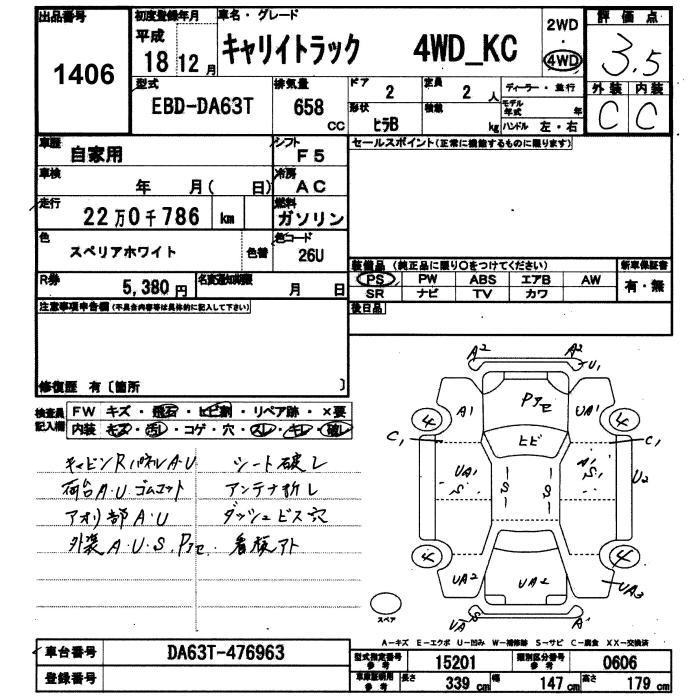 出品番号
1406
初度登録年月
平成
18年12月
車名・グレード
キャリイトラック 4WD_KC
2WD
・
4WD
評価点
3.5
外装 内装
C C
型式
EBD-DA63T
排気量
658
cc
ドア
2
定員
2人
形状
ヒラB
積載
kg
ディーラー・並行
モデル年式 年
ハンドル 左・右
車歴
自家用
シフト
F5
車検
年 月( 日)
冷房
AC
走行
22万0千786 km
燃料
ガソリン
色
スペリアホワイト
色替
色コード
26U
R券
5,380円
名変通知期限
月 日
セールスポイント(正常に機能するものに限ります)
装備品(純正品に限り○をつけてください)
PS PW ABS エアB AW
SR ナビ TV カワ
新車保証書
有・無
後日品
注意事項申告欄(不具合内容等は具体的に記入して下さい)
修復歴 有〔箇所 〕
検査員
記入欄
FW キズ・飛石・ヒビ割・リペア跡・×要
内装 キズ・汚レ・コゲ・穴・スレ・キレ・破レ
キャビンRパネルA・U シート破レ
荷台A・U ゴムマット アンテナ折レ
アオリ部A・U ダッシュビス穴
外装A・U・S, Pアセ 看板アト
A2 A2
U1
A1 Pアセ UA1
4 4
C1 ヒビ C1
UA1 S S S A1 S1 U2
4 4
UA2 UA2 UA3
UA2 S A1
スペア
A-キズ E-エクボ U-凹み W-補修跡 S-サビ C-腐食 XX-交換済
車台番号
DA63T-476963
登録番号
型式指定番号
参考
15201
類別区分番号
参考
0606
車庫証明用
参考
長さ
339 cm
幅
147 cm
高さ
179 cm